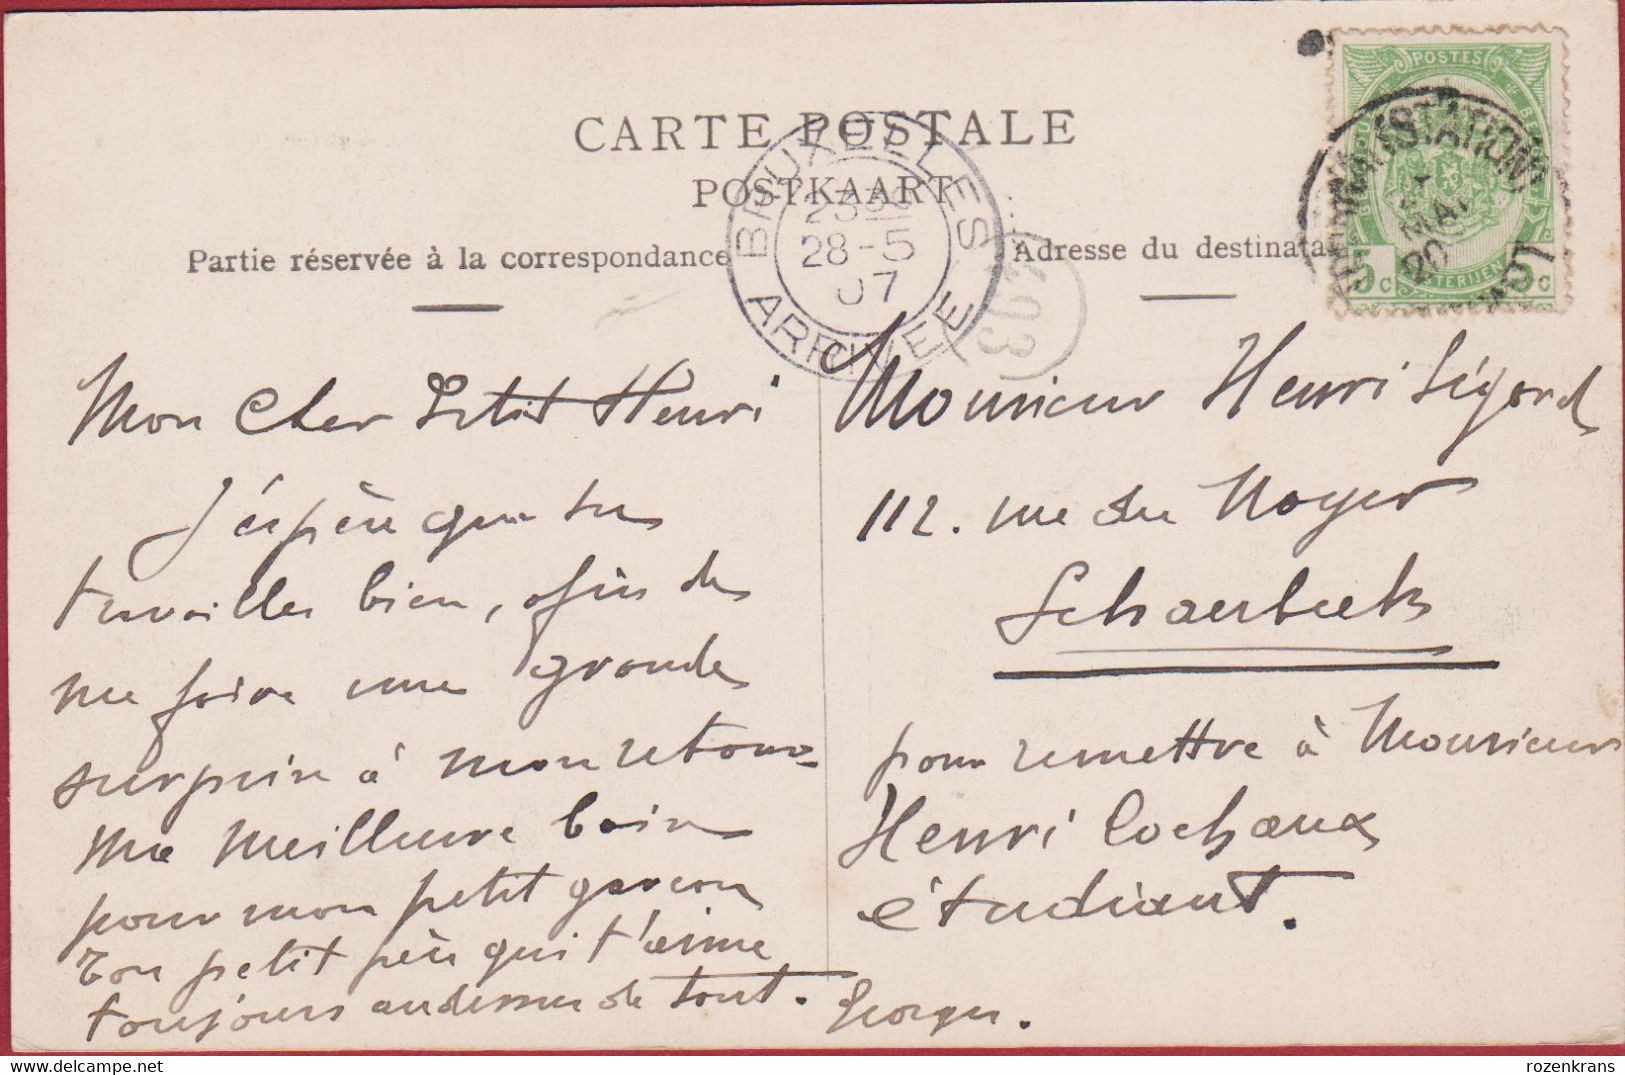 CARTE POSTALE
POSTKAART
Partie réservée à la correspondance
Adresse du destinata
BRUXELLES
28-5
07
ARRIVEE
POSTES
(STATION)
MAI
20
07
5 c
5 c
203
Mon Cher Petit Henri
J'éspère que tu
travailles bien, afin de
me faire une grande
surprise à mon retour
Ma meilleure baise
pour mon petit garcon
Ton petit père qui t'aime
toujours audessus de tout. Georges.
Monsieur Henri Ligord
112. rue du Noyer
Schaerbeek
pour remettre à Monsieur
Henri Cochaux
étudiant.
rozenkrans